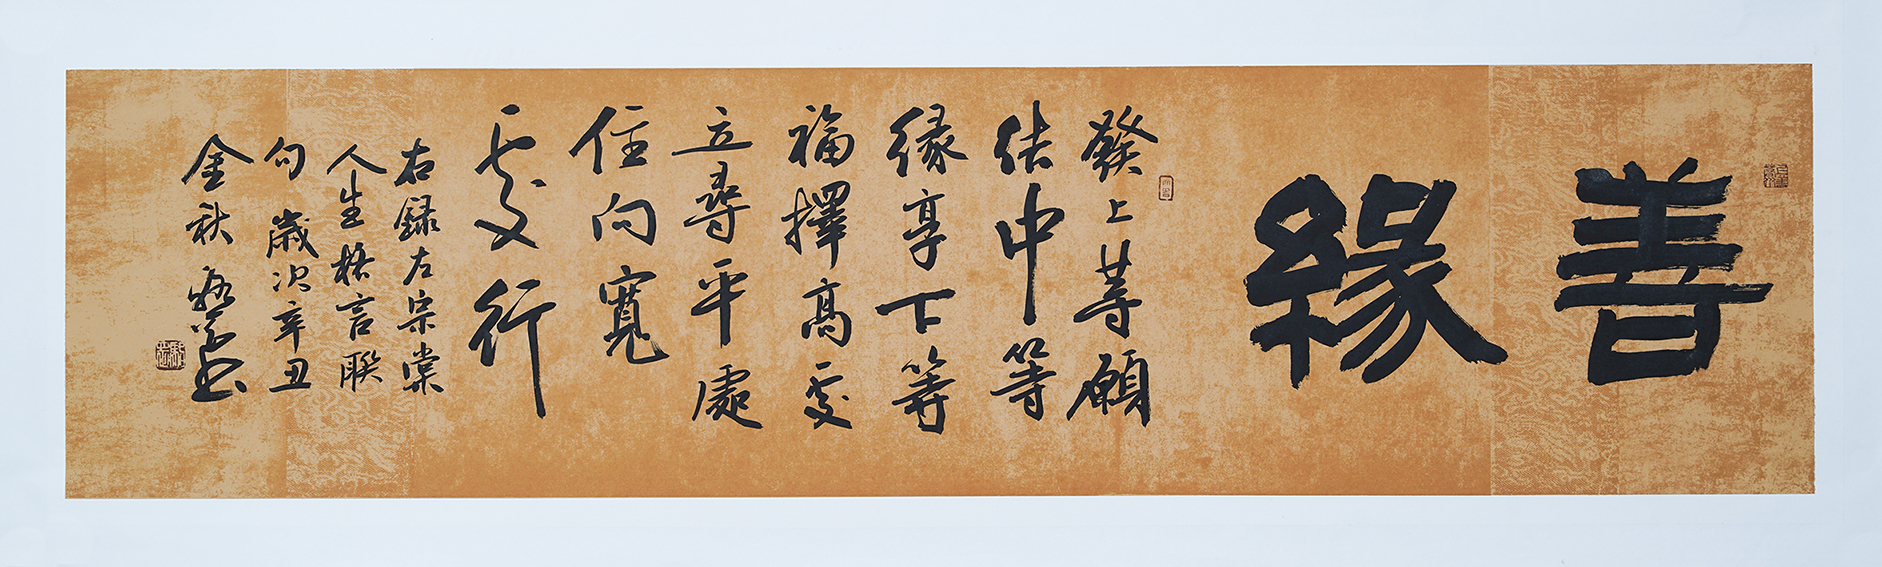 善緣
發上等願
结中等
緣享下等
福擇高处
立尋平處
住向寬
处行
右録左宗棠
人生格言聯
句 歲次辛丑
金秋